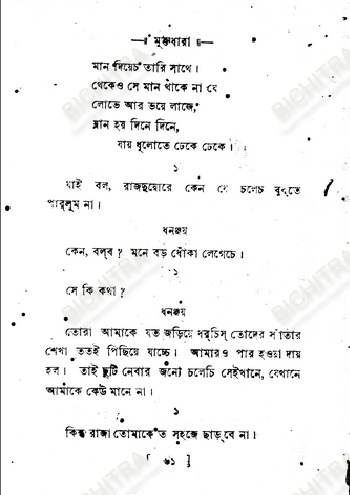 মুক্তধারা
মান দিয়েচ তারি সাথে।
থেকেও সে মান থাকে না যে
লোভে আর ভয়ে লাজে,
ম্লান হয় দিনে দিনে,
যায় ধুলোতে ঢেকে ঢেকে।
১
যাই বল, রাজদুয়োরে কেন যে চলেচ বুঝতে
পারলুম না।
ধনঞ্জয়
কেন, বলব ? মনে বড় ধোঁকা লেগেচে।
১
সে কি কথা ?
ধনঞ্জয়
তোরা আমাকে যত জড়িয়ে ধরচিস্ তোদের সাঁতার
শেখা ততই পিছিয়ে যাচ্চে। আমারও পার হওয়া দায়
হল। তাই ছুটি নেবার জন্যে চলেচি সেইখানে, যেখানে
আমাকে কেউ মানে না।
১
কিন্তু রাজা তোমাকে ত সহজে ছাড়বে না।
[ ৬১ ]
BICHITRA
BICHITRA
BICHITRA
BICHITRA